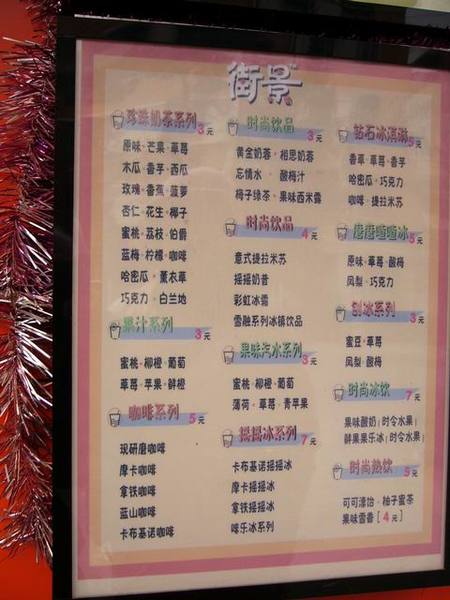 街景
珍珠奶茶系列 3元
原味·芒果·草莓
木瓜·香芋·西瓜
玫瑰·香蕉·菠萝
杏仁·花生·椰子
蜜桃·荔枝·伯爵
蓝莓·柠檬·咖啡
哈密瓜·薰衣草
巧克力·白兰地
果汁系列 3元
蜜桃·柳橙·葡萄
草莓·苹果·鲜橙
咖啡系列 5元
现研磨咖啡
摩卡咖啡
拿铁咖啡
蓝山咖啡
卡布基诺咖啡
时尚饮品 3元
黄金奶蓉·相思奶蓉
忘情水 酸梅汁
梅子绿茶·果味西米露
时尚饮品 4元
意式提拉米苏
摇摇奶昔
彩虹冰露
雪融系列冰镇饮品
果味汽水系列 3元
蜜桃·柳橙·葡萄
薄荷·草莓·青苹果
摇摇冰系列 7元
卡布基诺摇摇冰
摩卡摇摇冰
拿铁摇摇冰
啤乐冰系列
钻石冰淇淋 5元
香草·草莓·香芋
哈密瓜·巧克力
咖啡·提拉米苏
磨磨喳喳冰 5元
原味·草莓·酸梅
凤梨·巧克力
刨冰系列 3元
蜜豆·草莓
凤梨·酸梅
时尚冰饮 7元
果味酸奶(时令水果)
鲜果果乐冰(时令水果)
时尚热饮 5元
可可漆饴·柚子蜜茶
果味雪香[4元]